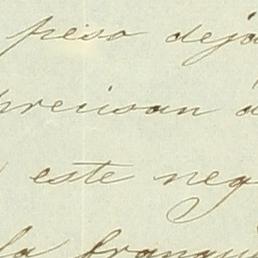 peso dejá
precisan á
este neg
la franqu